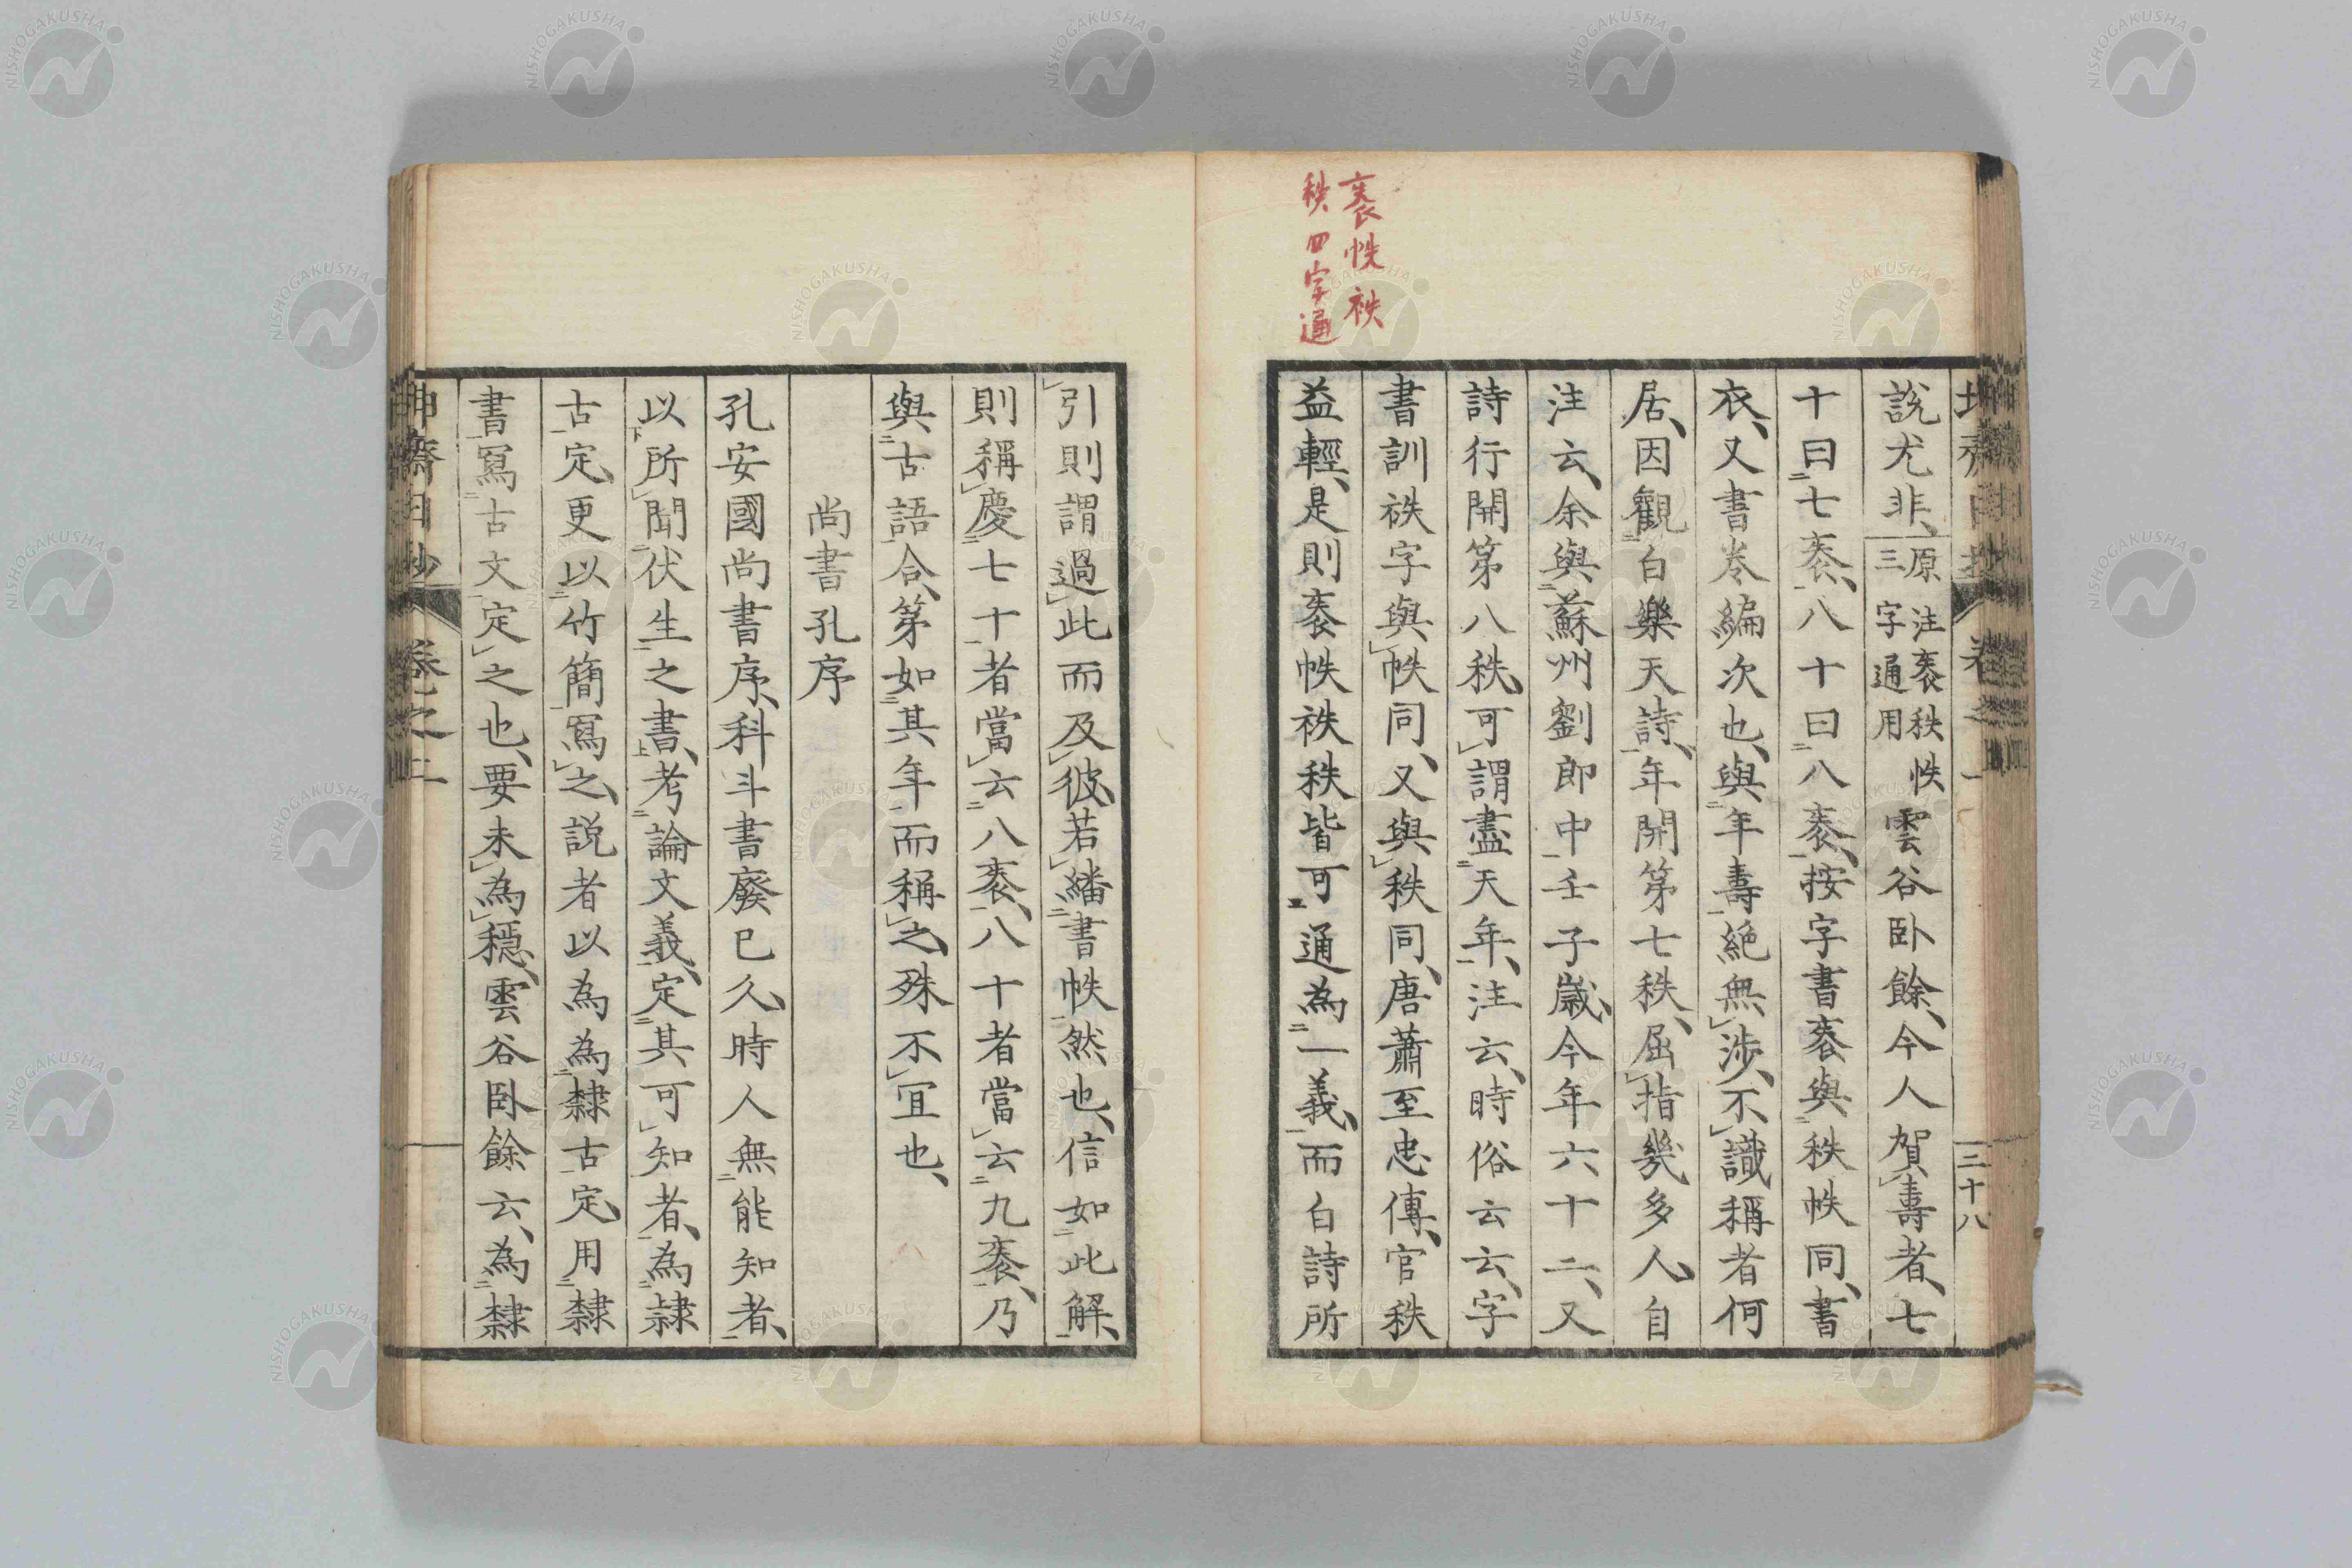 袠帙袟
秩四字通
說尤非、原注袠秩帙三字通用雲谷卧餘、今人賀壽者、七
十曰七袠、八十曰八袠、按字書袠與秩帙同、書
衣、又書卷編次也、與年壽絕無涉、不識稱者何
居、因觀白樂天詩、年開第七秩、屈指幾多人、自
注云、余與蘇州劉郎中壬子歲、今年六十二、又
詩行開第八秩、可謂盡天年、注云、時俗云云、字
書訓袟字與帙同、又與秩同、唐蕭至忠傳、官秩
益輕、是則袠帙袟秩皆可通為一義、而白詩所
三十八
引則謂過此而及彼、若繙書帙然也、信如此解、
則稱慶七十者當云八袠、八十者當云九袠、乃
與古語合、第如其年而稱之、殊不冝也、
尚書孔序
孔安國尚書序、科斗書廢已久、時人無能知者、
以所聞伏生之書、考論文義、定其可知者、為隷
古定、更以竹簡寫之、説者以為為隸古定、用隸
書寫古文定之也、要未為穩、雲谷卧餘云、為隸
卷之二